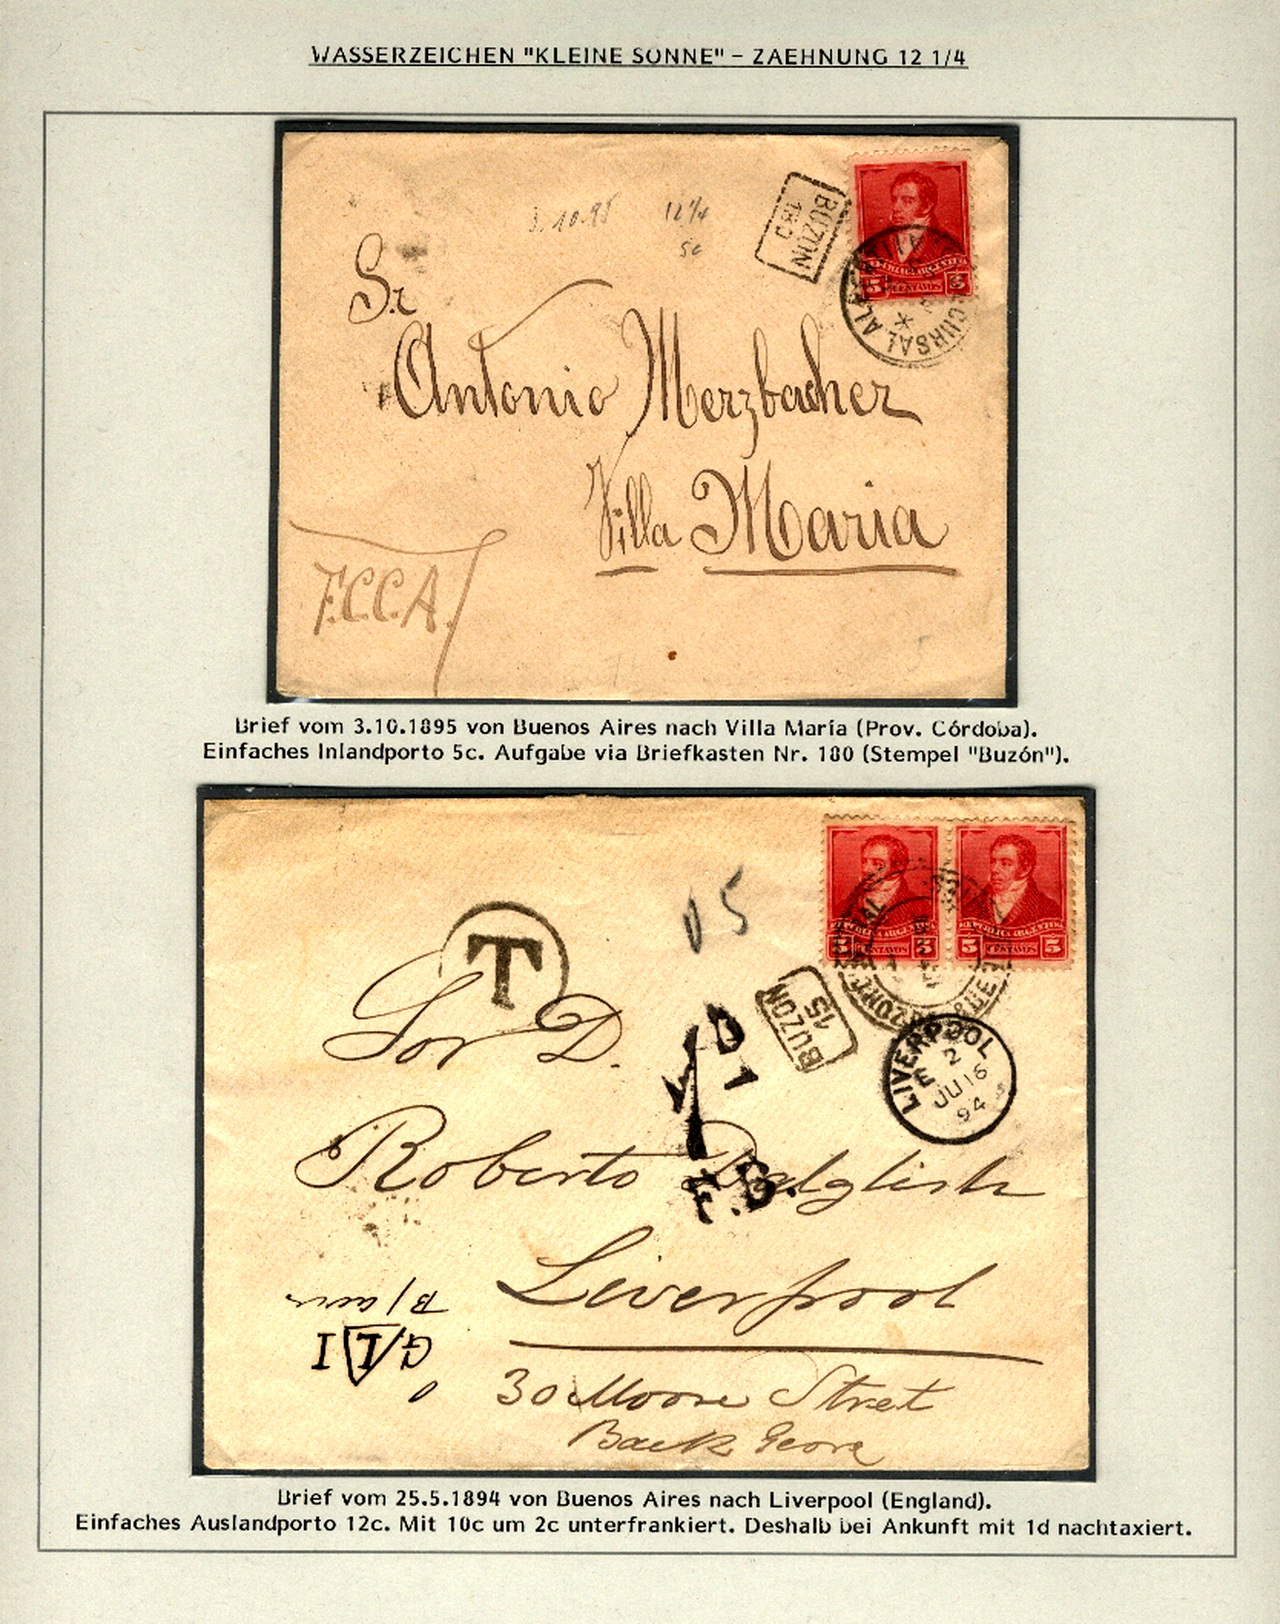 WASSERZEICHEN "KLEINE SONNE" – ZAEHNUNG 12 1/4
3.10.95 12 1/4
5c
BUZON
180
REPUBLICA ARGENTINA
5 CENTAVOS 5
CURSAL AL
Sr
Antonio Merzbacher
Villa Maria
F.C.C.A.
Brief vom 3.10.1895 von Buenos Aires nach Villa María (Prov. Córdoba).
Einfaches Inlandporto 5c. Aufgabe via Briefkasten Nr. 180 (Stempel "Buzón").
REPUBLICA ARGENTINA
5 CENTAVOS 5
REPUBLICA ARGENTINA
5 CENTAVOS 5
T
15
BUZON
15
LIVERPOOL
E 2
JU 16
94
1D
F.B.
Sor D.
Roberto Dalglish
Liverpool
30 Moore Street
Back
Brief vom 25.5.1894 von Buenos Aires nach Liverpool (England).
Einfaches Auslandporto 12c. Mit 10c um 2c unterfrankiert. Deshalb bei Ankunft mit 1d nachtaxiert.